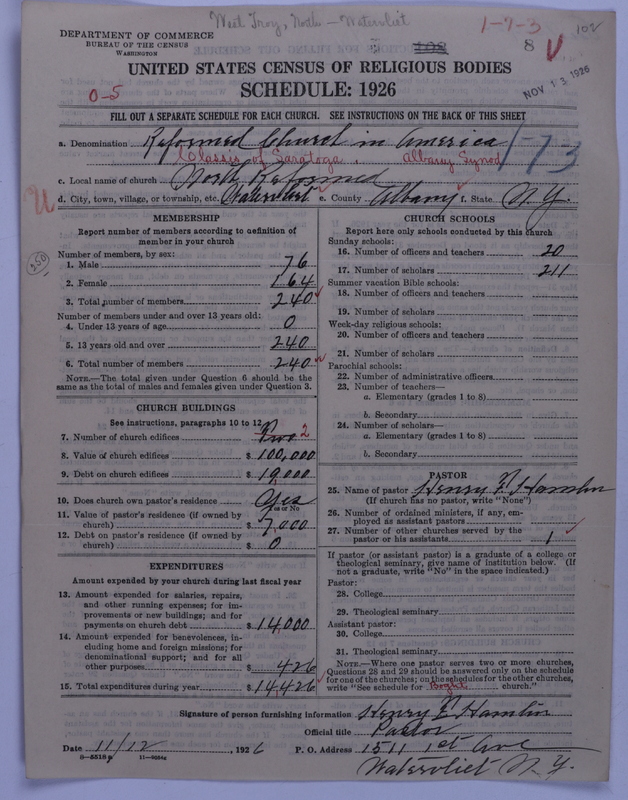 West Troy, North - Watervliet
1-7-3
102
DEPARTMENT OF COMMERCE
BUREAU OF THE CENSUS
WASHINGTON
8
NOV 13 1926
UNITED STATES CENSUS OF RELIGIOUS BODIES
0-5
SCHEDULE: 1926
FILL OUT A SEPARATE SCHEDULE FOR EACH CHURCH. SEE INSTRUCTIONS ON THE BACK OF THIS SHEET
a. Denomination Reformed Church in America
Classis of Saratoga. Albany Synod 1-73
c. Local name of church North Reformed
d. City, town, village, or township, etc. Watervliet e. County Albany f. State N.Y.
MEMBERSHIP
Report number of members according to definition of
member in your church
Number of members, by sex:
350
1. Male 76
2. Female 164
3. Total number of members 240
Number of members under and over 13 years old:
4. Under 13 years of age 0
5. 13 years old and over 240
6. Total number of members 240
NOTE.—The total given under Question 6 should be the
same as the total of males and females given under Question 3.
CHURCH BUILDINGS
See instructions, paragraphs 10 to 12
7. Number of church edifices Two 2
8. Value of church edifices $ 100,000
9. Debt on church edifices $ 19,000
10. Does church own pastor's residence Yes
Yes or No
11. Value of pastor's residence (if owned by
church) $ 7,000
12. Debt on pastor's residence (if owned by
church) $ 0
EXPENDITURES
Amount expended by your church during last fiscal year
13. Amount expended for salaries, repairs,
and other running expenses; for im-
provements or new buildings; and for
payments on church debt $ 14,000
14. Amount expended for benevolences, in-
cluding home and foreign missions; for
denominational support; and for all
other purposes $ 426
15. Total expenditures during year $ 14,426
CHURCH SCHOOLS
Report here only schools conducted by this church
Sunday schools:
16. Number of officers and teachers 20
17. Number of scholars 211
Summer vacation Bible schools:
18. Number of officers and teachers
19. Number of scholars
Week-day religious schools:
20. Number of officers and teachers
21. Number of scholars
Parochial schools:
22. Number of administrative officers
23. Number of teachers—
a. Elementary (grades 1 to 8)
b. Secondary
24. Number of scholars—
a. Elementary (grades 1 to 8)
b. Secondary
PASTOR
25. Name of pastor Henry E. Hamlin
(If church has no pastor, write "None")
26. Number of ordained ministers, if any, em-
ployed as assistant pastors
27. Number of other churches served by the
pastor or his assistants 1
If pastor (or assistant pastor) is a graduate of a college or
theological seminary, give name of institution below. (If
not a graduate, write "No" in the space indicated.)
Pastor:
28. College
29. Theological seminary
Assistant pastor:
30. College
31. Theological seminary
NOTE.—Where one pastor serves two or more churches,
Questions 28 and 29 should be answered only on the schedule
for one of the churches; on the schedules for the other churches,
write "See schedule for Boght church."
Signature of person furnishing information Henry E. Hamlin
Official title Pastor
Date 11/12, 1926 P. O. Address 1511 1st Ave
Watervliet N.Y.